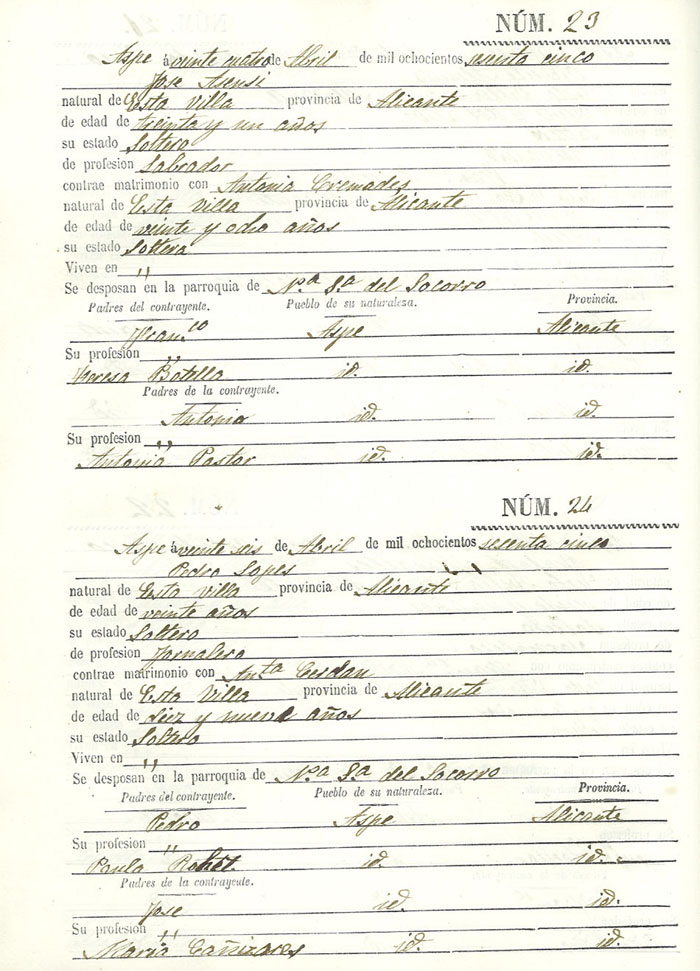 NÚM. 23
Aspe á veinte cuatro de Abril de mil ochocientos sesenta cinco
Jose Asensi
natural de Esta Villa provincia de Alicante
de edad de treinta y un años
su estado Soltero
de profesion Labrador
contrae matrimonio con Antonia Cremades
natural de Esta Villa provincia de Alicante
de edad de veinte y ocho años
su estado Soltera
Viven en ,,
Se desposan en la parroquia de Nª Sª del Socorro
Padres del contrayente. Pueblo de su naturaleza. Provincia.
Franco Aspe Alicante
Su profesion ,,
Teresa Botella id. id.
Padres de la contrayente.
Antonio id. id.
Su profesion ,,
Antonia Pastor id. id.
NÚM. 24
Aspe á veinte seis de Abril de mil ochocientos sesenta cinco
Pedro Lopes
natural de Esta villa provincia de Alicante
de edad de veinte años
su estado Soltero
de profesion Jornalero
contrae matrimonio con Anta Cerdan
natural de Esta Villa provincia de Alicante
de edad de diez y nueve años
su estado Soltero
Viven en ,,
Se desposan en la parroquia de Nª Sª del Socorro
Padres del contrayente. Pueblo de su naturaleza. Provincia.
Pedro Aspe Alicante
Su profesion ,,
Paula id. id.
Padres de la contrayente.
Jose id. id.
Su profesion ,,
Maria Cañizares id. id.